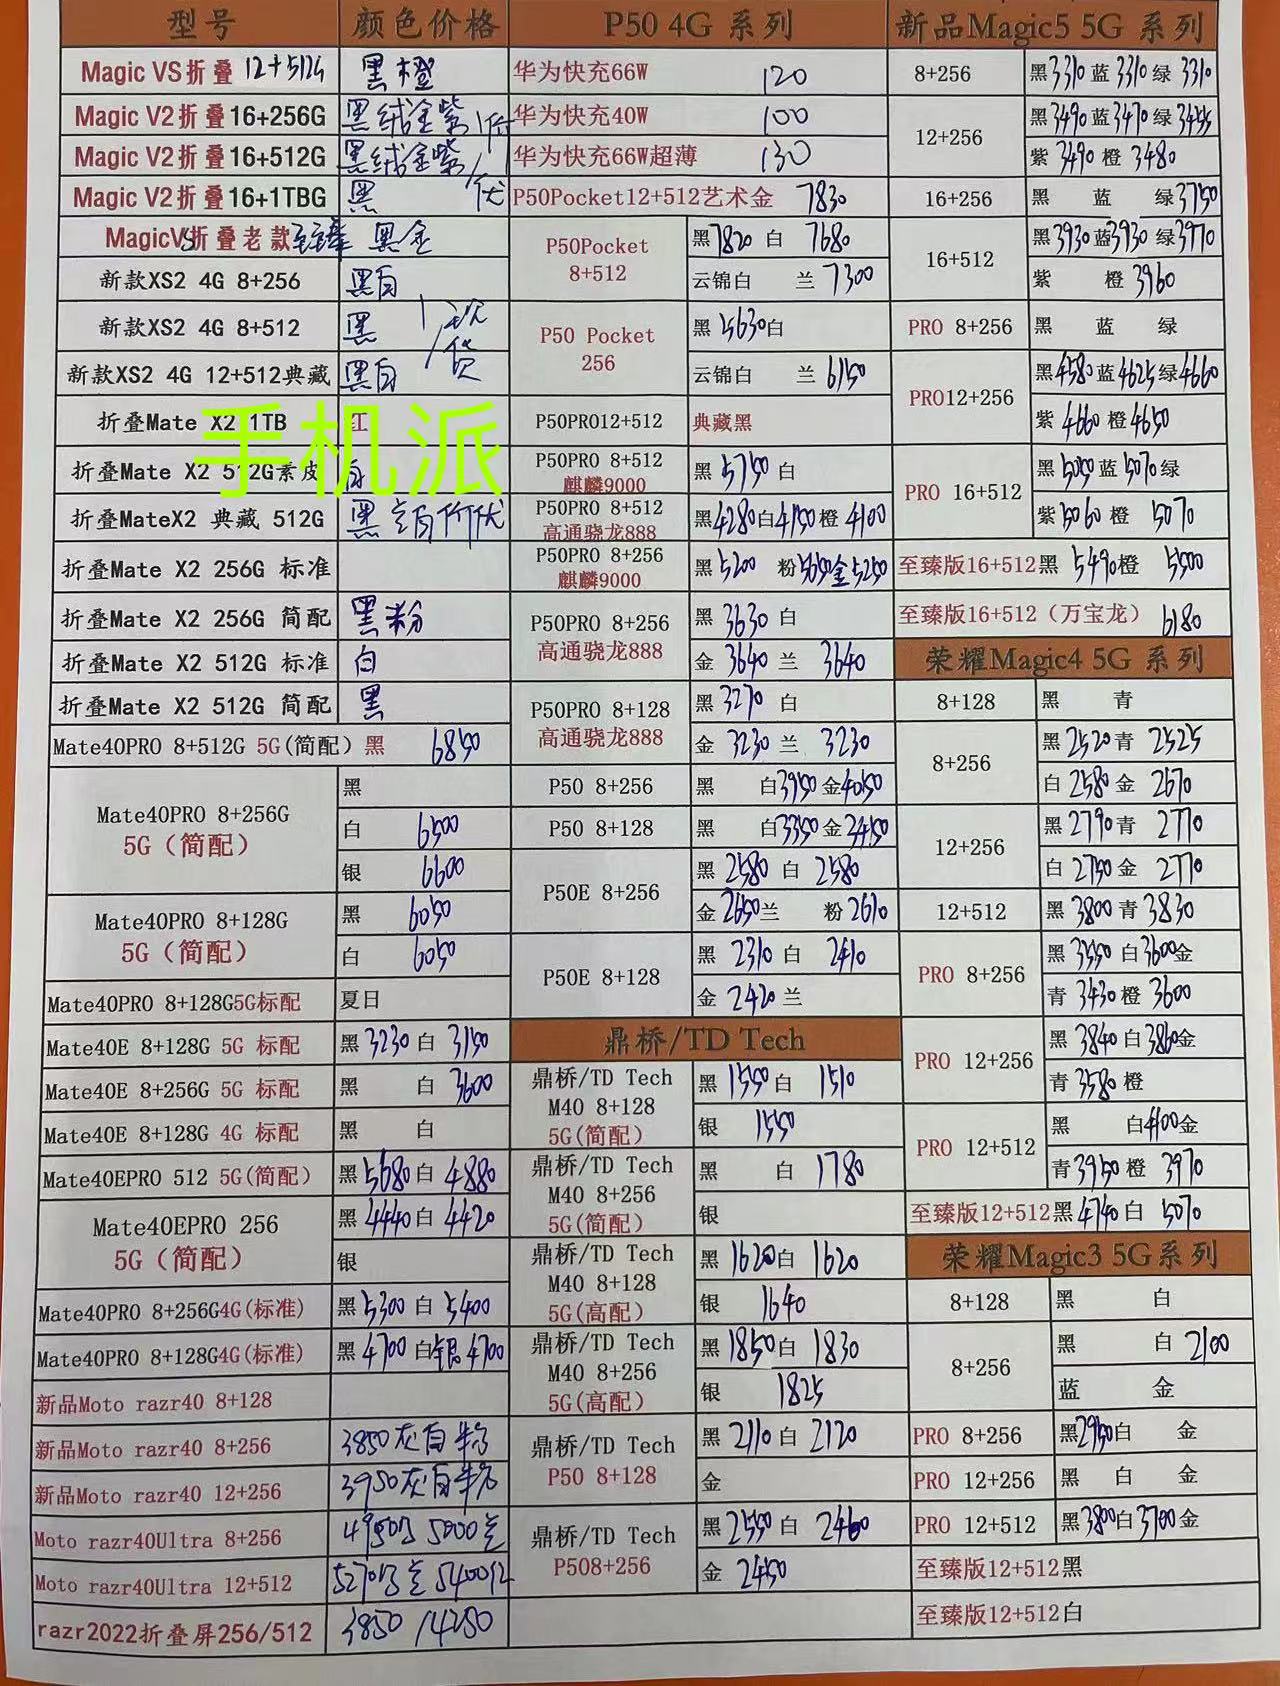 型号 颜色价格 P50 4G 系列 新品Magic5 5G 系列
Magic VS折叠 12+512G 黑橙 华为快充66W 120 8+256 黑3310 蓝3310 绿3310
Magic V2折叠16+256G 黑绒金紫 华为快充40W 100 12+256 黑3490 蓝3470 绿3455
Magic V2折叠16+512G 黑绒金紫 华为快充66W超薄 130 紫3490 橙3480
Magic V2折叠16+1TBG 黑 P50Pocket12+512艺术金 7830 16+256 黑 蓝 绿3750
MagicVS折叠老款 黑金 P50Pocket 8+512 黑7820 白 7680 16+512 黑3930 蓝3930 绿3970
新款XS2 4G 8+256 黑白 云锦白 兰7300 紫 橙3960
新款XS2 4G 8+512 黑 现货 P50 Pocket 256 黑5630白 PRO 8+256 黑 蓝 绿
新款XS2 4G 12+512典藏 黑白 云锦白 兰6150 PRO12+256 黑4580蓝4625绿4660
折叠Mate X2 1TB 红 P50PRO12+512 典藏黑 紫4660橙4650
手机派
折叠Mate X2 512G素皮 白 P50PRO 8+512 麒麟9000 黑5750白 PRO 16+512 黑5050蓝5070绿
折叠MateX2 典藏 512G 黑 P50PRO 8+512 高通骁龙888 黑4280白4150橙4100 紫5060橙 5070
折叠Mate X2 256G 标准 P50PRO 8+256 麒麟9000 黑5200 粉5650金5250 至臻版16+512黑5490橙 5500
折叠Mate X2 256G 简配 黑粉 P50PRO 8+256 高通骁龙888 黑3630白 至臻版16+512（万宝龙）6180
折叠Mate X2 512G 标准 白 金3640兰 3640 荣耀Magic4 5G 系列
折叠Mate X2 512G 简配 黑 P50PRO 8+128 高通骁龙888 黑3270白 8+128 黑 青
Mate40PRO 8+512G 5G(简配）黑 6850 金3230兰 3230 8+256 黑2520青 2525
Mate40PRO 8+256G 5G（简配） 黑 P50 8+256 黑 白3950金4050 白2580金 2670
白 6500 P50 8+128 黑 白3350金3450 12+256 黑2790青 2770
银 6600 P50E 8+256 黑2580白 2580 白2750金 2770
Mate40PRO 8+128G 5G（简配） 黑 6050 金2650兰 粉2610 12+512 黑3800青3830
白 6050 P50E 8+128 黑 2310白 2410 PRO 8+256 黑3550白3600金
Mate40PRO 8+128G5G标配 夏日 金2420兰 青3430橙3600
Mate40E 8+128G 5G 标配 黑3230白 3150 鼎桥/TD Tech PRO 12+256 黑3840白3860金
Mate40E 8+256G 5G 标配 黑 白 3600 鼎桥/TD Tech M40 8+128 5G(简配） 黑1550白 1510 青3580橙
Mate40E 8+128G 4G 标配 黑 白 银 1550 PRO 12+512 黑 白4100金
Mate40EPRO 512 5G(简配） 黑5680白 4880 鼎桥/TD Tech M40 8+256 5G(简配） 黑 白 1780 青3950橙 3970
Mate40EPRO 256 5G（简配） 黑4440白 4420 银 至臻版12+512黑4740白 5070
银 鼎桥/TD Tech M40 8+128 5G(高配） 黑1620白 1620 荣耀Magic3 5G系列
Mate40PRO 8+256G4G(标准) 黑5300白 5400 银 1640 8+128 黑 白
Mate40PRO 8+128G4G(标准) 黑4700白银4700 鼎桥/TD Tech M40 8+256 5G(高配） 黑1850白 1830 8+256 黑 白 2100
新品Moto razr40 8+128 银 1825 蓝 金
新品Moto razr40 8+256 3850灰白 鼎桥/TD Tech P50 8+128 黑2110白2120 PRO 8+256 黑2950白 金
新品Moto razr40 12+256 3950灰白 金 PRO 12+256 黑 白 金
Moto razr40Ultra 8+256 鼎桥/TD Tech P508+256 黑2550白 2460 PRO 12+512 黑3800白3700金
Moto razr40Ultra 12+512 金 2450 至臻版12+512黑
razr2022折叠屏256/512 3850 /4250 至臻版12+512白